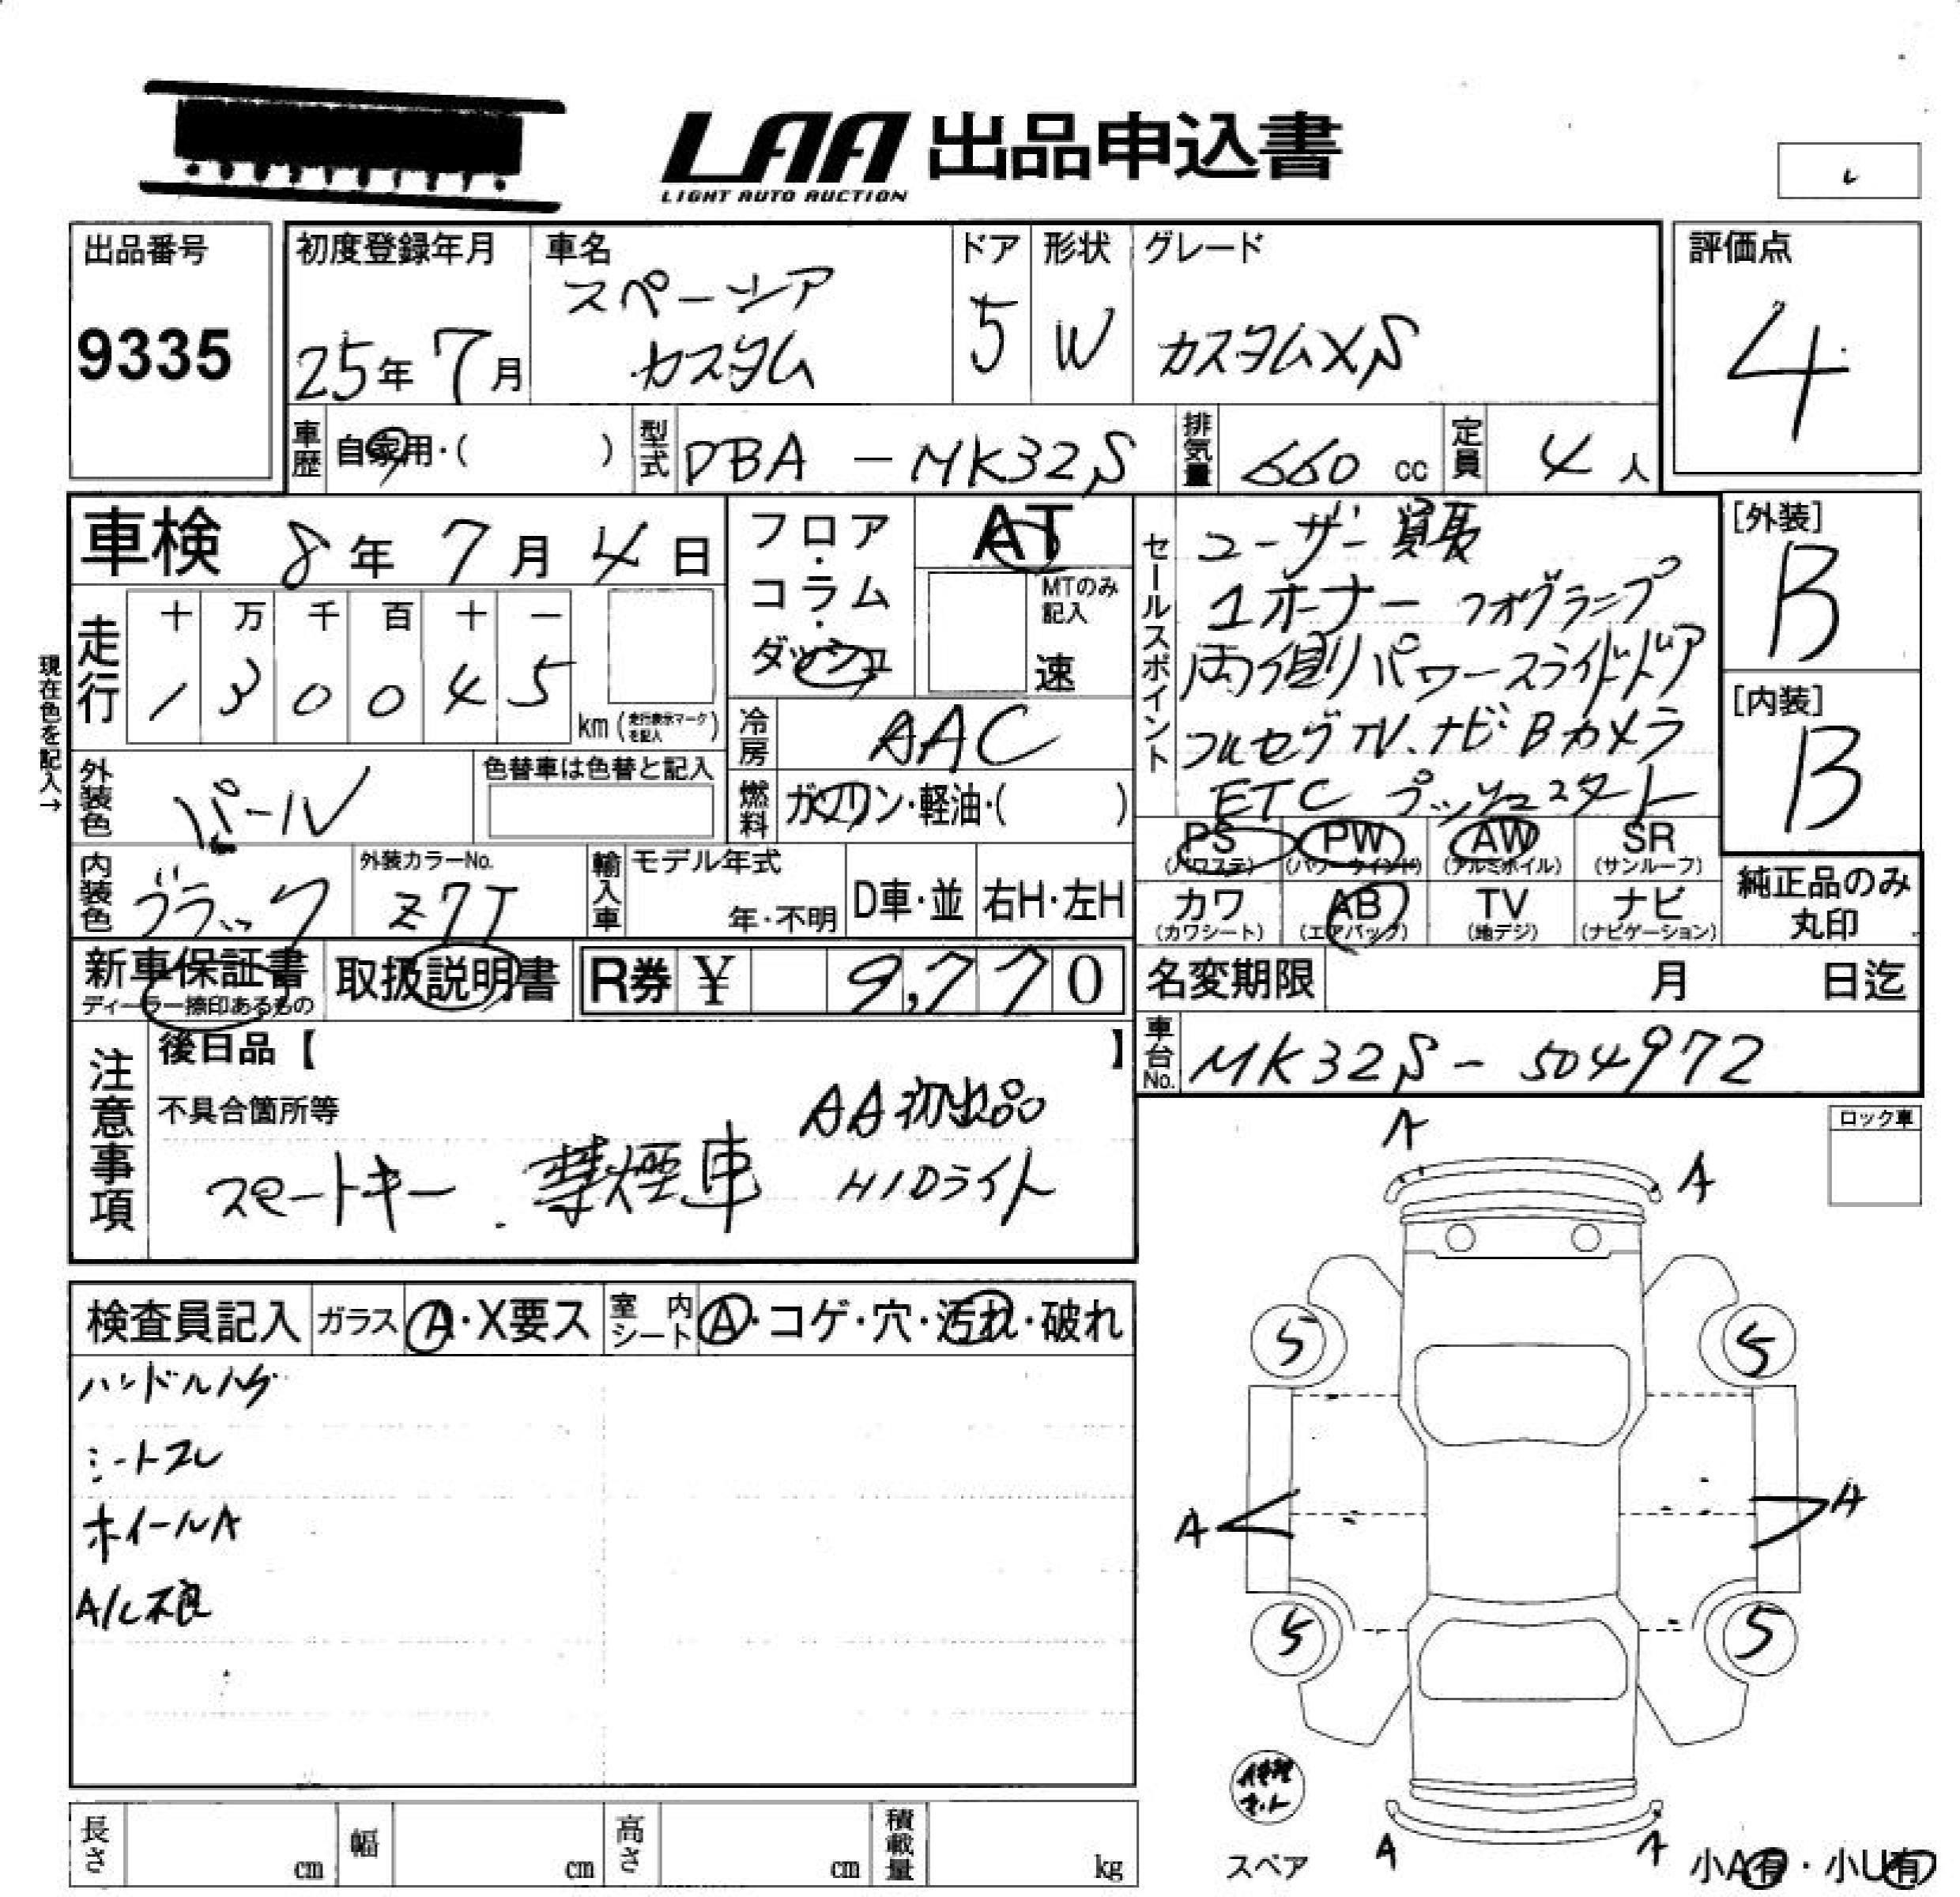 LAA 出品申込書
LIGHT AUTO AUCTION
出品番号
9335
初度登録年月
25年 7月
車名
スペーシア
カスタム
ドア
5
形状
W
グレード
カスタムXS
評価点
4
車歴 自家用・( )
型式 DBA - MK32S
排気量 660 cc
定員 4 人
車検 8年 7月 4日
走行
十 万 千 百 十 一
1 3 0 0 4 5
km (走行表示マークを記入)
現在色を記入→
外装色 パール
色替車は色替と記入
内装色 ブラック
外装カラーNo.
Z7T
フロア・コラム・ダッシュ
AT
MTのみ記入
速
冷房 AAC
燃料 ガソリン・軽油・( )
輸入車
モデル年式
年・不明
D車・並
右H・左H
セールスポイント
ユーザー買取
1オーナー フォグランプ
両側パワースライドドア
フルセグTV.ナビ Bカメラ
ETC プッシュスタート
[外装]
B
[内装]
B
PS (パワステ)
PW (パワーウインド)
AW (アルミホイル)
SR (サンルーフ)
カワ (カワシート)
AB (エアバッグ)
TV (地デジ)
ナビ (ナビゲーション)
純正品のみ丸印
新車保証書
ディーラー捺印あるもの
取扱説明書
R券 ¥ 9,770
名変期限 月 日迄
車台No. MK32S - 504972
注意事項
後日品【 】
不具合箇所等
AA初出品
スマートキー . 禁煙車 HIDライト
ロック車
検査員記入
ガラス A・X要ス
室内シート A・コゲ・穴・汚れ・破れ
ハンドルハゲ
シートスレ
ホイールA
A/C不良
A
A
5
5
A
A
5
5
修理キット
スペア
A
A
小A有・小U有
長さ cm
幅 cm
高さ cm
積載量 kg